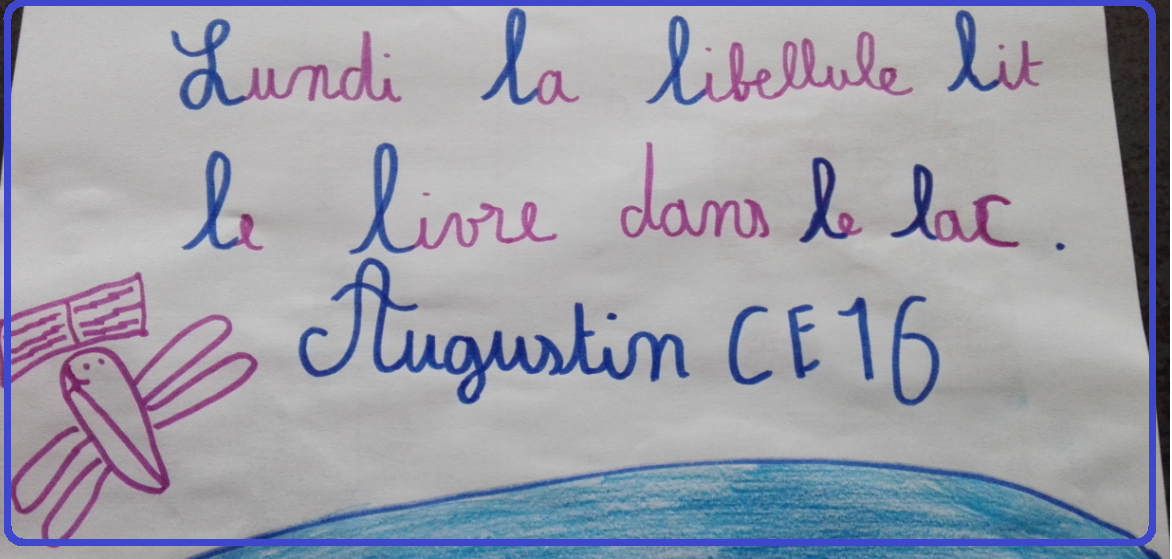 Lundi la libellule lit
le livre dans le lac.
Augustin CE16